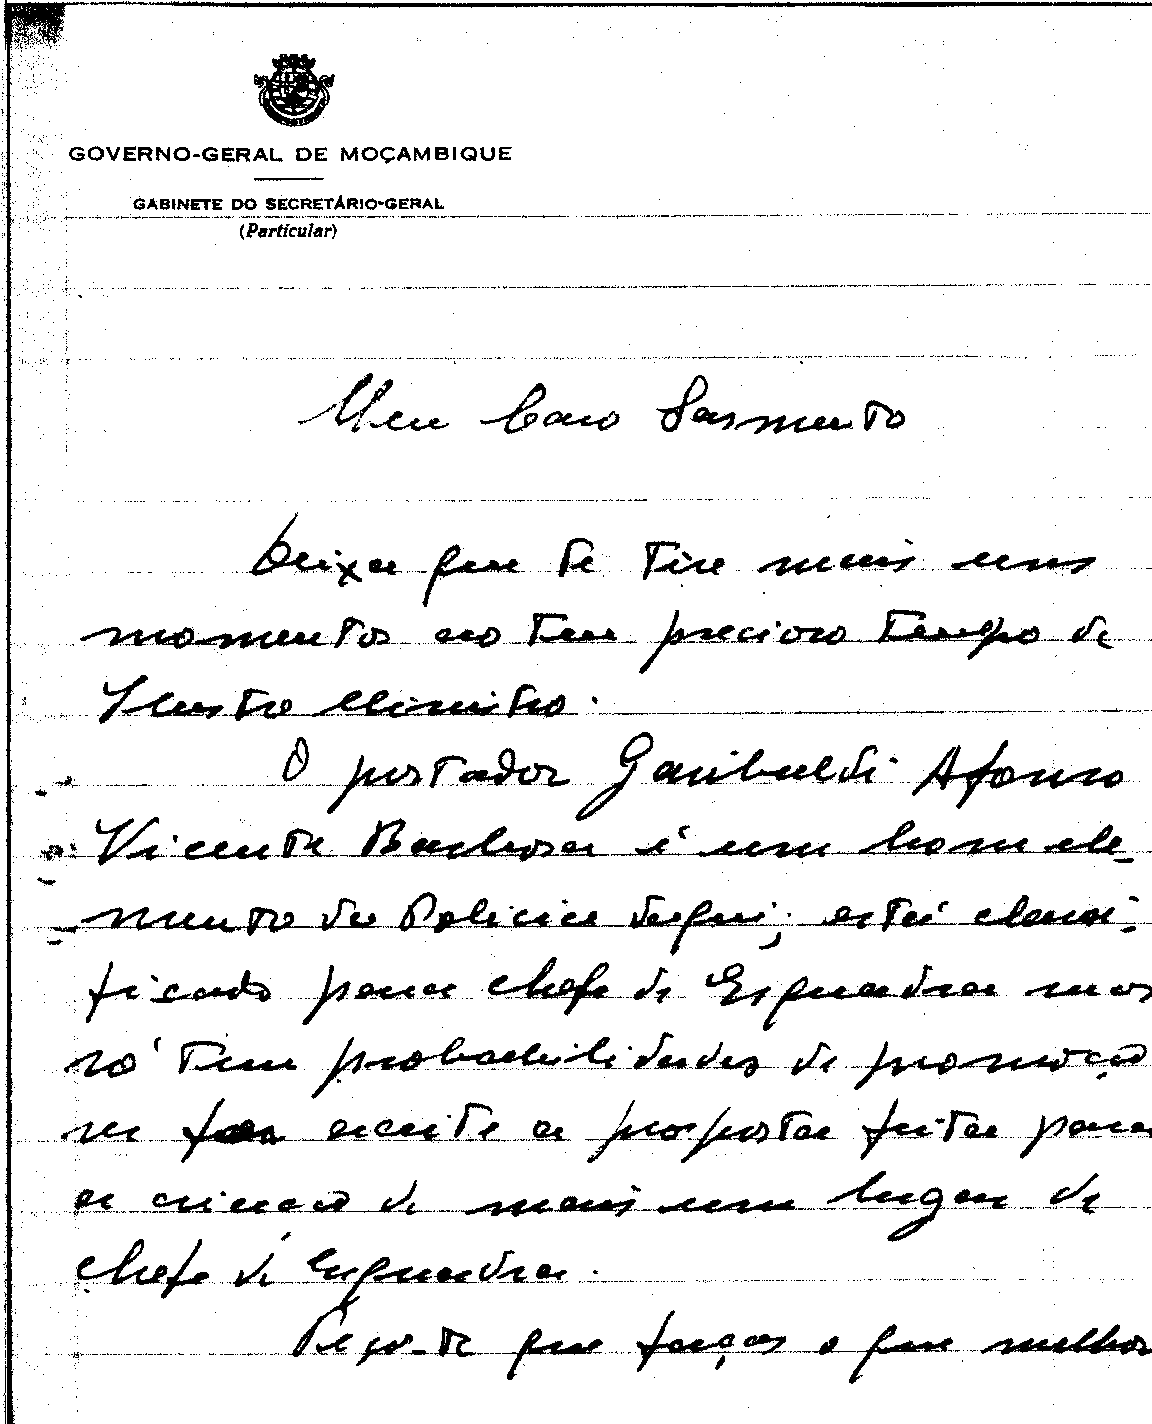 GOVERNO-GERAL DE MOÇAMBIQUE
GABINETE DO SECRETÁRIO-GERAL
(Particular)
Meu Caro Sarmento
Deixa que te tire mais uns
momentos ao teu precioso tempo de
Ilustre Ministro.
O portador Garibaldi Afonso
Vicente Barbosa é um bom ele-
mento da Policia daqui; está classi-
ficado para chefe de Esquadra mas
só tem probabilidades de promoção
se for aceite a proposta feita para
a criação de mais um lugar de
chefe de Esquadra.
Peço-te que faças o que melhor